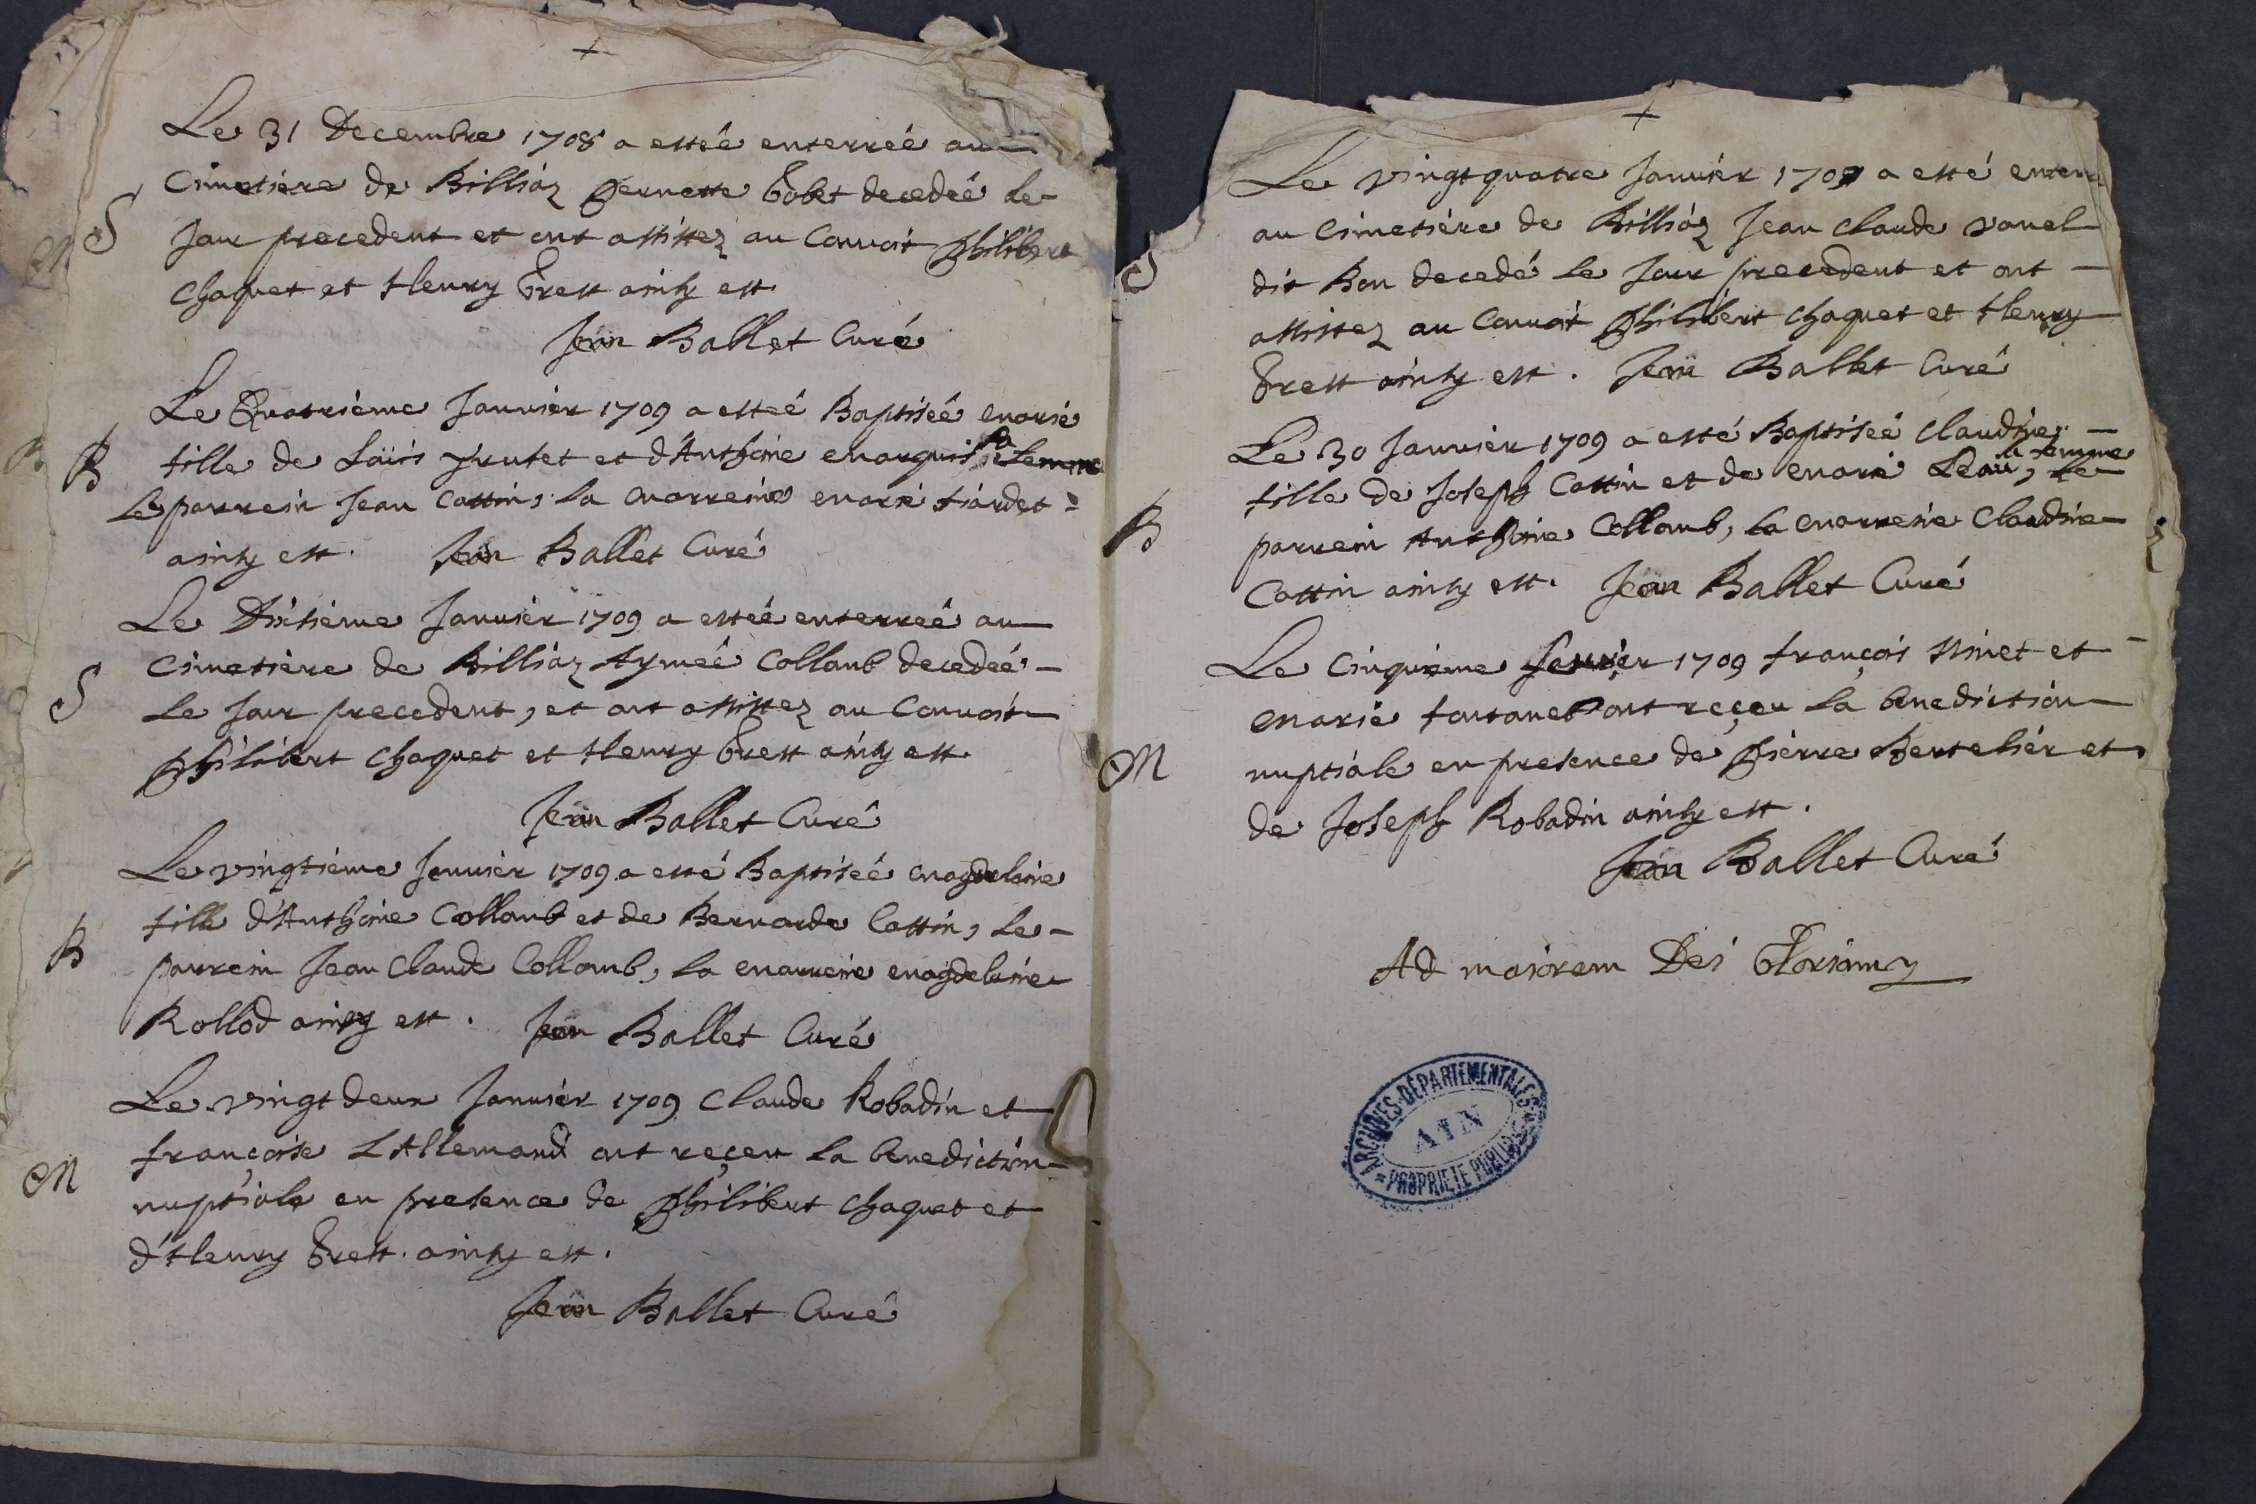 +
Le 31 Decembre 1708 a esteé enterreé au
Cimetiere de Billiaz Pernette Gobet decedeé le
S
Jour precedent et ont assistez au Convoit Philibert
Chaquet et Henry Grest ainsy est
Jean Ballet Curé
Le Quatriéme Janvier 1709 a esteé Baptiseé Marie
B
fille de Loüis et d'Anthoine Marquis sa femme
Le parrein Jean Cottin, la Marreine Marie
ainsy est. Jean Ballet Curé
Le Dixiéme Janvier 1709 a esteé enterreé au
Cimetiere de Billiaz Aymeé Collomb decedeé
S
le Jour precedent, et ont assistez au Convoit
Philibert Chaquet et Henry Grest ainsy est
Jean Ballet Curé
Le vingtiéme Janvier 1709 a esté Baptiseé Magdeleine
fille d'Anthoine Collomb et de Bernarde Cottin, le
B
parrein Jean Claude Collomb, la Marreine Magdeleine
Rollod ainsy est. Jean Ballet Curé
Le vingt deux Janvier 1709 Claude Robadin et
françoise LAllemand ont reçeu la benediction
M
nuptiale en presence de Philibert Chaquet et
d'Henry Grest. ainsy est.
Jean Ballet Curé
+
Le vingt quatre Janvier 1709 a esté enterré
au Cimetiére de Billiaz Jean Claude
S
dit Bon decedé le Jour precedent et ont
assistez au Convoit Philibert Chaquet et Henry
Grest ainsy est. Jean Ballet Curé
Le 30 Janvier 1709 a esté Baptiseé Claudine
fille de Joseph Cottin et de Marie sa femme, le
B
parrein Anthoine Collomb, la Marreine Claudine
Cottin ainsy est. Jean Ballet Curé
Le Cinquiéme fevrier 1709 françois et
Marie ont reçeu la benediction
M
nuptiale en presence de Pierre Berteliér et
de Joseph Robadin ainsy est.
Jean Ballet Curé
Ad maiorem Dei Gloriam
ARCHIVES DÉPARTEMENTALES
AIN
PROPRIETE PUBLIQUE